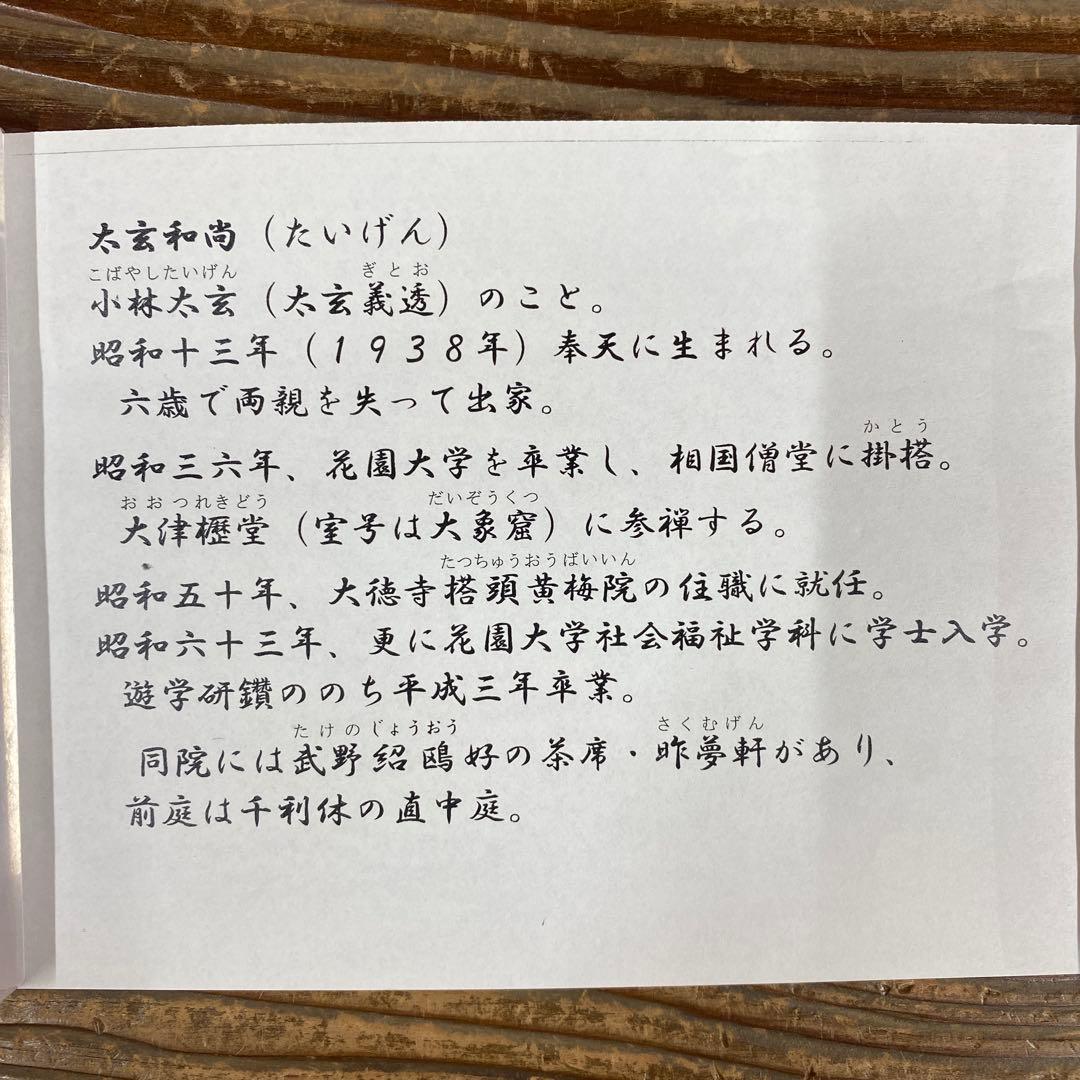 太玄和尚（たいげん）
こばやしたいげん ぎとお
小林太玄（太玄義透）のこと。
昭和十三年（１９３８年）奉天に生まれる。
六歳で両親を失って出家。
かとう
昭和三六年、花園大学を卒業し、相国僧堂に掛搭。
おおつれきどう だいぞうくつ
大津櫪堂（室号は大象窟）に参禅する。
たっちゅうおうばいいん
昭和五十年、大徳寺搭頭黄梅院の住職に就任。
昭和六十三年、更に花園大学社会福祉学科に学士入学。
遊学研鑽ののち平成三年卒業。
たけのじょうおう さくむげん
同院には武野紹鴎好の茶席・昨夢軒があり、
前庭は千利休の直中庭。